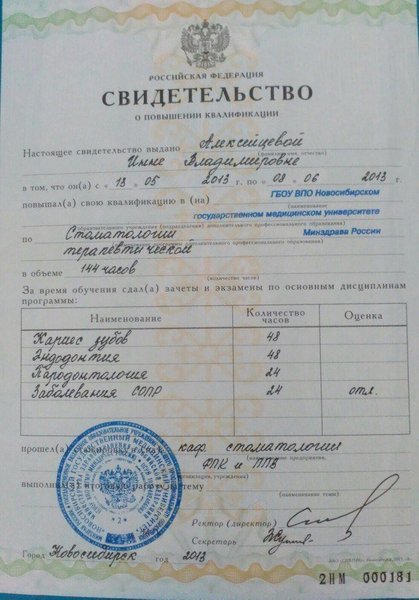 РОССИЙСКАЯ ФЕДЕРАЦИЯ
СВИДЕТЕЛЬСТВО
О ПОВЫШЕНИИ КВАЛИФИКАЦИИ
Настоящее свидетельство выдано Алексейцевой
(фамилия, имя, отчество)
Инне Владимировне
в том, что он(а) с « 13 » 05 2013 г. по « 08 » 06 2013 г.
повышал(а) свою квалификацию в (на) ГБОУ ВПО Новосибирском
(наименование
государственном медицинском университете
образовательного учреждения (подразделения) дополнительного профессионального образования)
Минздрава России
по Стоматологии
терапевтической
дополнительного профессионального образования)
в объеме 144 часов
(количество часов)
За время обучения сдал(а) зачеты и экзамены по основным дисциплинам
программы:
Наименование Количество часов Оценка
Кариес зубов 48
Эндодонтия 48
Пародонтология 24
Заболевания СОПР 24 отл.
прошел(а) каф. стоматологии
(наименование предприятия,
ФПК и ППВ
организации, учреждения)
выполнил(а) итоговую работу на тему
(наименование темы)
2
Ректор (директор)
Секретарь
Город Новосибирск год 2013
2НМ 000181